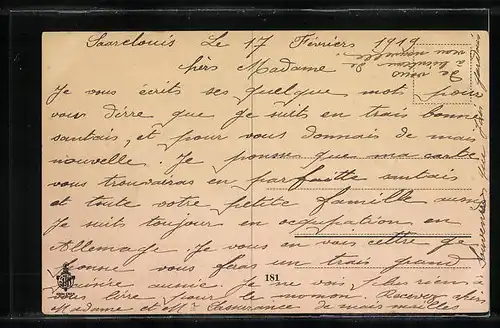 Saarelouis Le 17 Févriers 1919
hèrs Madame
Je vous écrits ses quelque mot pour
vous dirre que je suits en trais bonne
santais, et pour vous donnais de mais
nouvelle. Je pousse que ma carte
vous trouvairas en parfaitte santais
et toute votre petite famille aussi
Je suits toujour en occupation en
Allemage. Je vous en vois cettre
bonne vous feras un trais grand
aussie. Je ne vois plus rien à
vous dire pour le momon. Recevez chers
Madame et Mr L'assurance de mais
181
Je vous
à bientau de
vou nouvelle